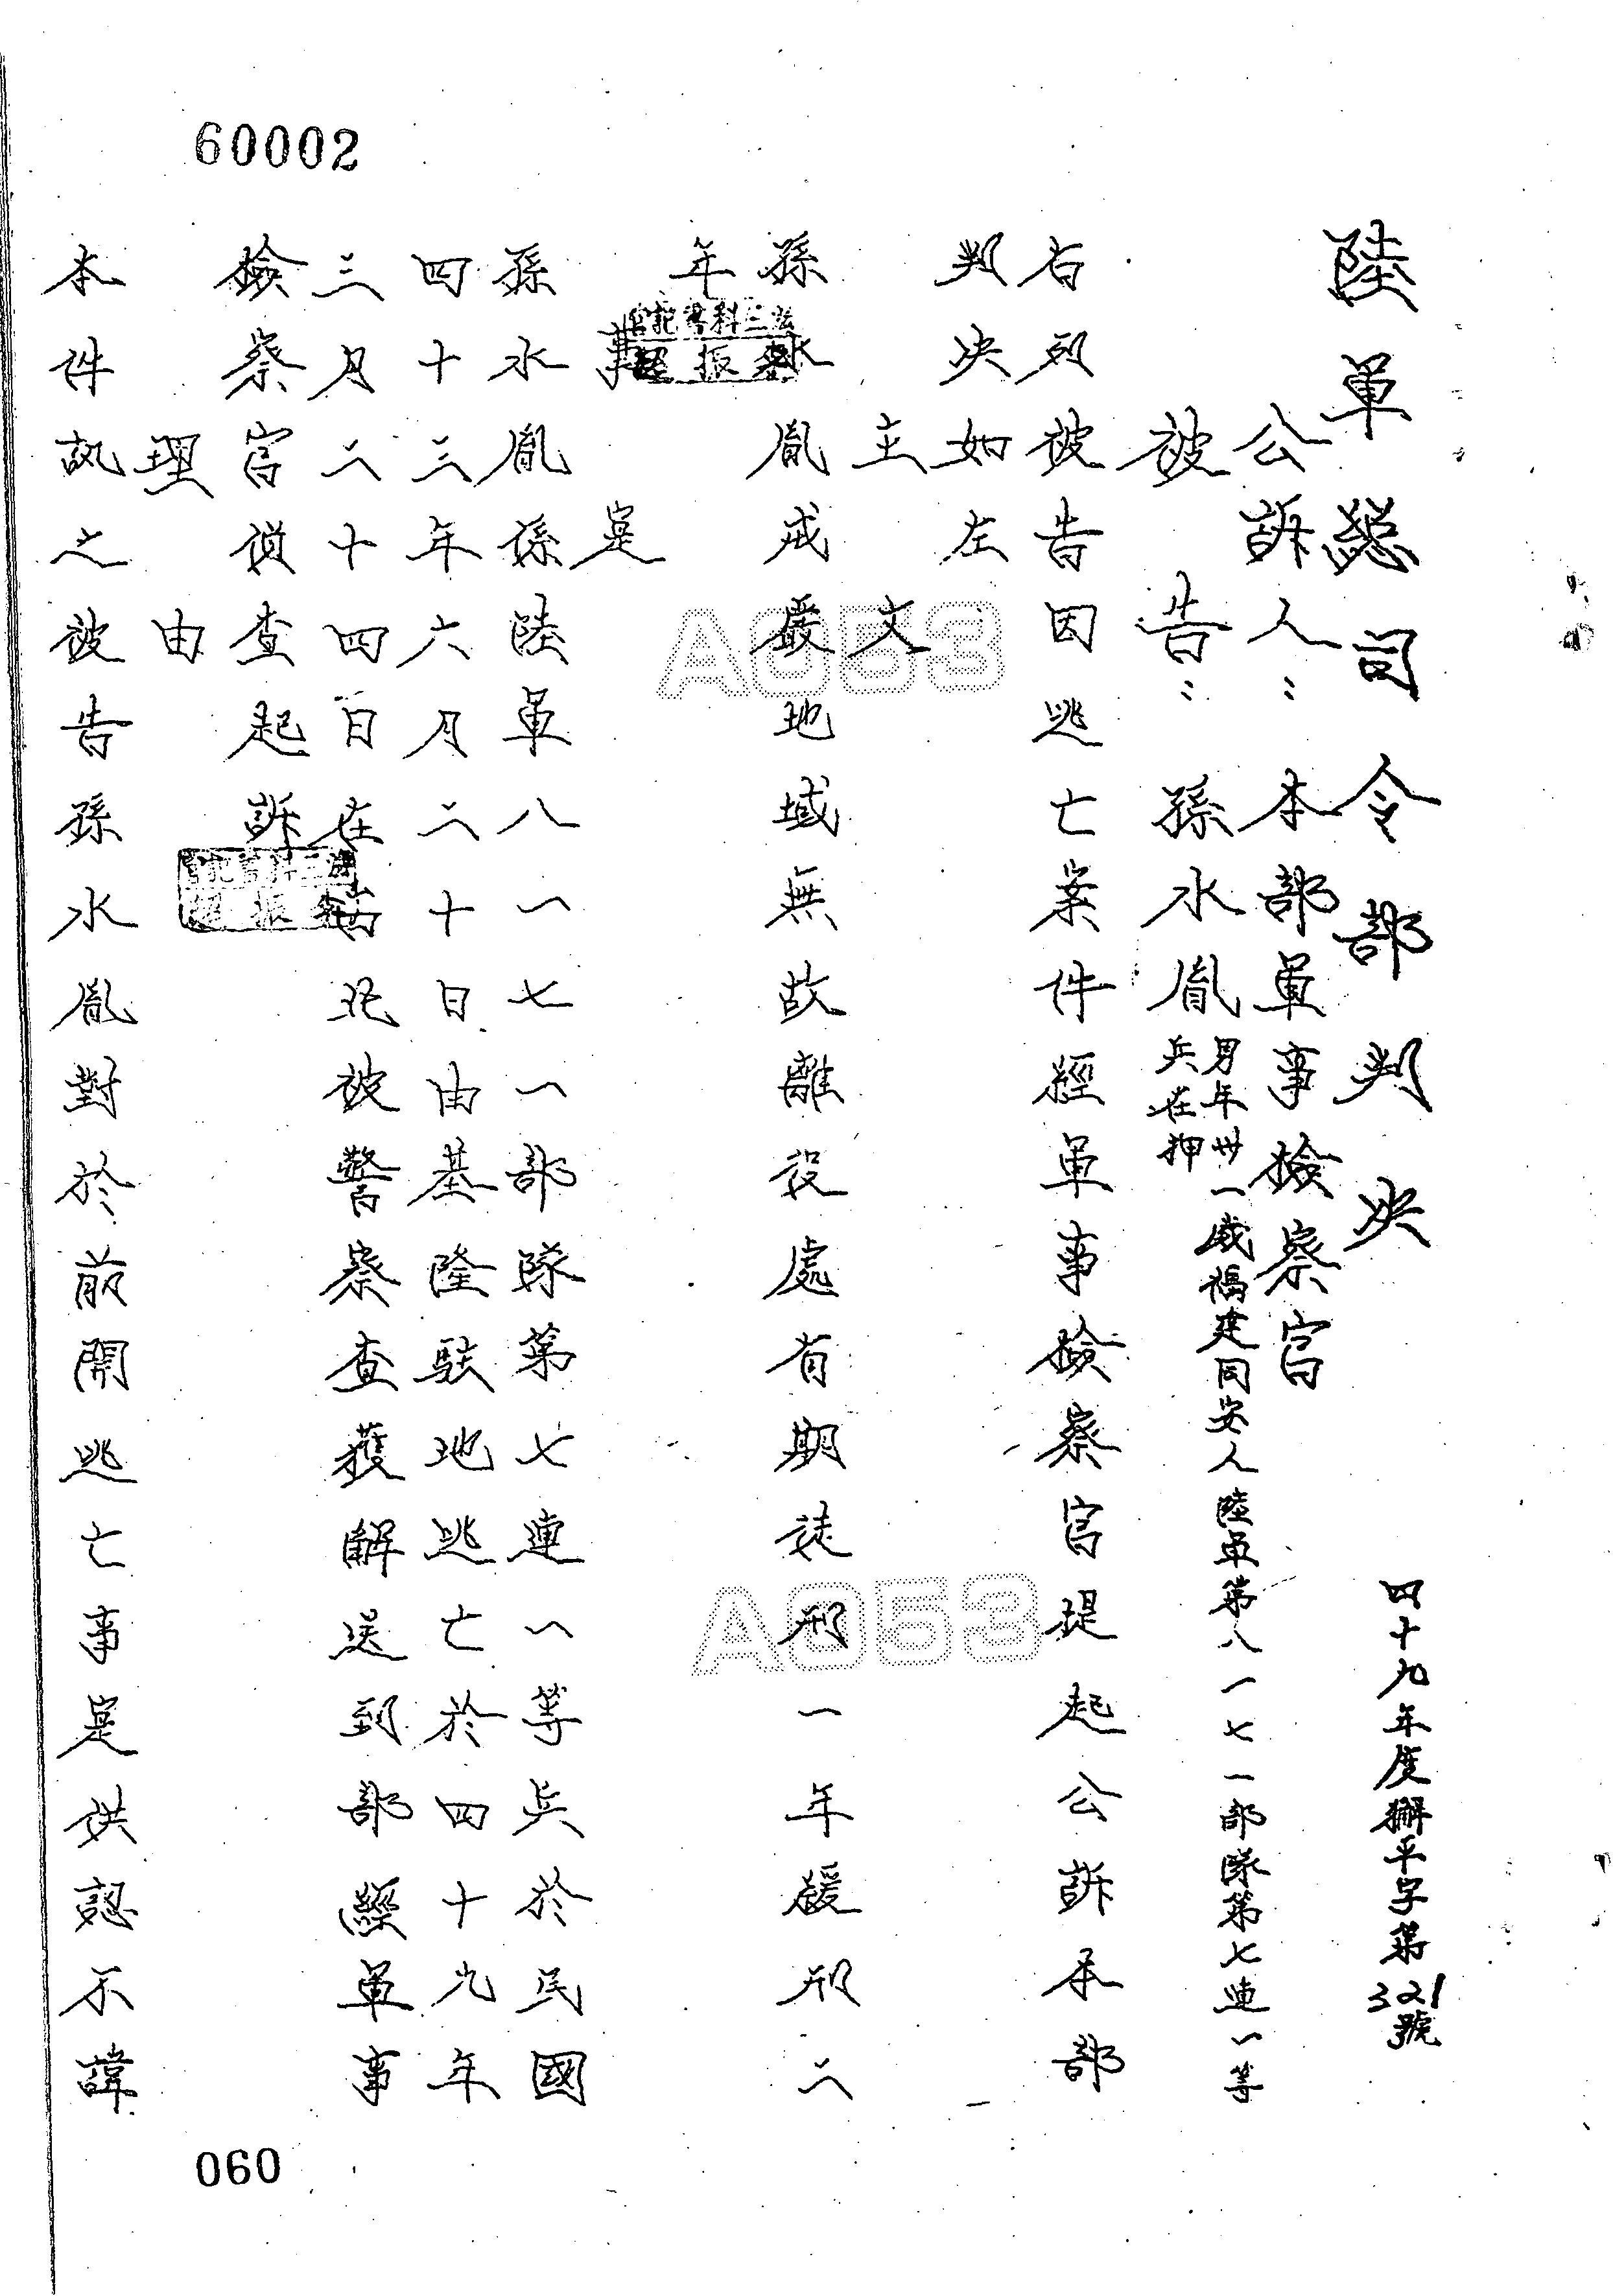 60002
陸軍總司令部判決
四十九年度獬平字第321號
公訴人：本部軍事檢察官
被告：孫水胤
男年卅一歲福建同安人陸軍第八一七一部隊第七連一等
兵在押
右列被告因逃亡案件經軍事檢察官提起公訴本部
判決如左
主文
孫水胤戒嚴地域無故離役處有期徒刑一年緩刑二
年
事實
孫水胤係陸軍八一七一部隊第七連一等兵於民國
四十三年六月二十日由基隆駐地逃亡於四十九年
三月二十四日在台北被警察查獲解送到部經軍事
檢察官偵查起訴
理由
本件訊之被告孫水胤對於前開逃亡事實供認不諱
A053
A053
060